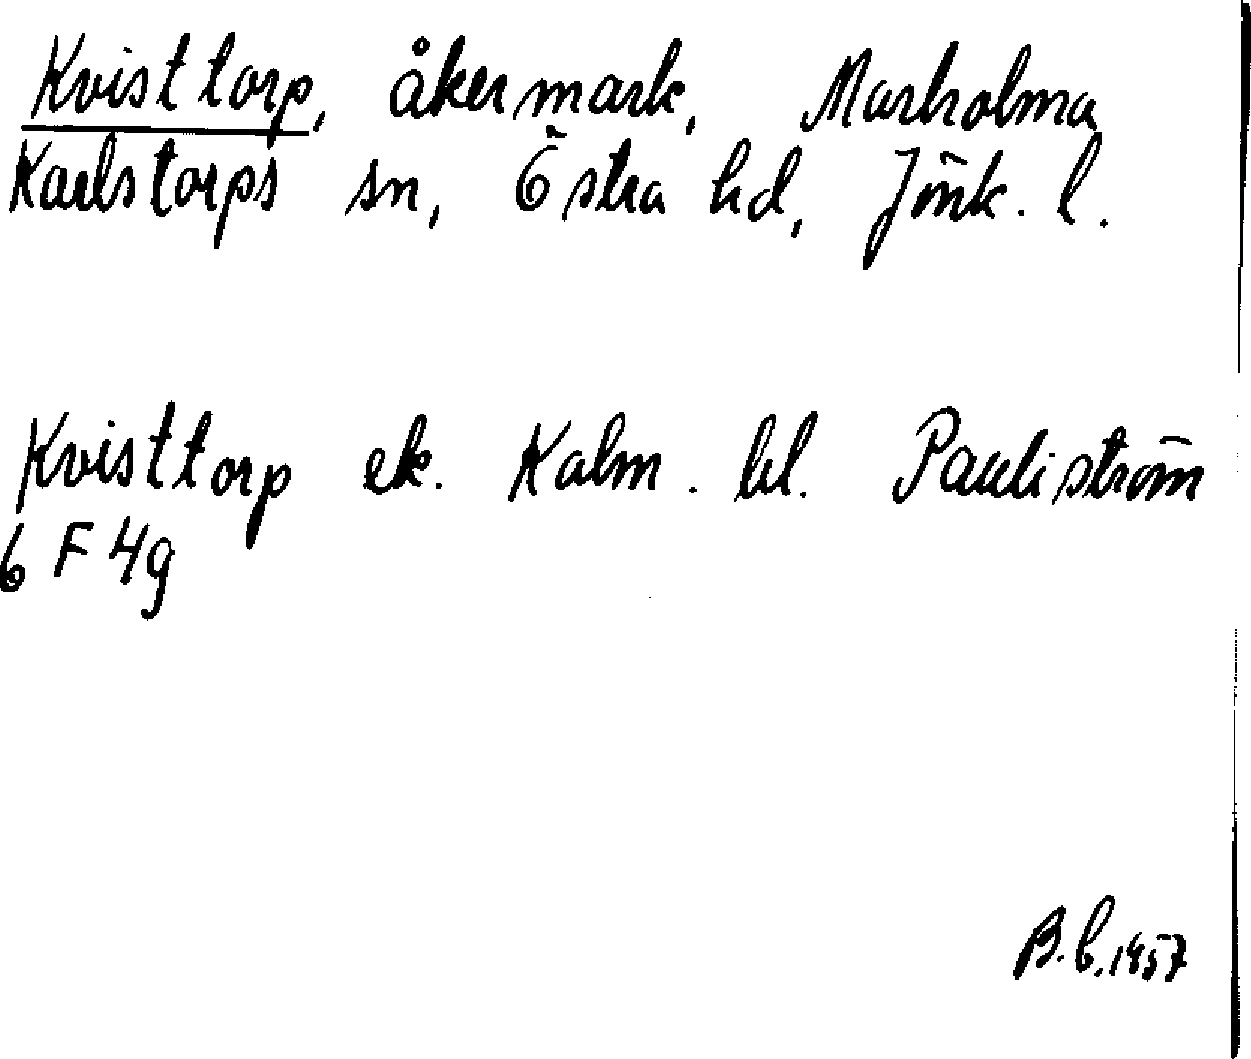 Kvisttorp, åkermark, Marholma
Karlstorps sn, Östra hd, Jönk. l.
Kvisttorp ek. Kalm. bl. Pauliström
6 F 4g
B.b. 1957